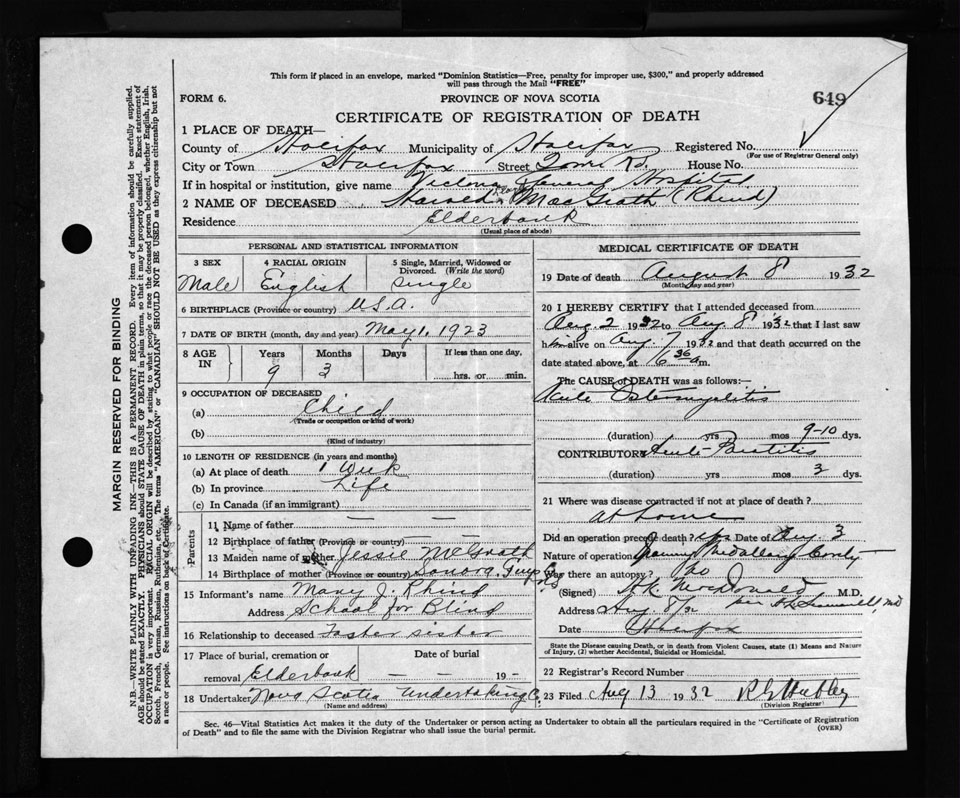 This form if placed in an envelope, marked "Dominion Statistics—Free, penalty for improper use, $300," and properly addressed
will pass through the Mail "FREE"
FORM 6.
PROVINCE OF NOVA SCOTIA
649
CERTIFICATE OF REGISTRATION OF DEATH
1 PLACE OF DEATH—
County of Halifax Municipality of Halifax Registered No.
(For use of Registrar General only)
City or Town Halifax Street Tower Rd. House No.
If in hospital or institution, give name Victoria General Hospital
2 NAME OF DECEASED Harold MacGrath (Rhind)
Residence Elderbank
(Usual place of abode)
PERSONAL AND STATISTICAL INFORMATION
3 SEX
4 RACIAL ORIGIN
5 Single, Married, Widowed or
Divorced. (Write the word)
Male English Single
6 BIRTHPLACE (Province or country) U.S.A.
7 DATE OF BIRTH (month, day and year) May 1, 1923
8 AGE IN
Years Months Days If less than one day,
9 3 hrs. or min.
9 OCCUPATION OF DECEASED
(a) Child
(Trade or occupation or kind of work)
(b)
(Kind of industry)
10 LENGTH OF RESIDENCE (in years and months)
(a) At place of death 1 Week
(b) In province Life
(c) In Canada (if an immigrant)
Parents
11 Name of father — —
12 Birthplace of father (Province or country) — —
13 Maiden name of mother Jessie McGrath
14 Birthplace of mother (Province or country) Sonora, Guys Co
15 Informant's name Mary J. Rhind
Address School for Blind
16 Relationship to deceased Foster sister
17 Place of burial, cremation or Date of burial
removal Elderbank 19 -
18 Undertaker Nova Scotia Undertaking Co.
(Name and address)
MEDICAL CERTIFICATE OF DEATH
19 Date of death August 8 1932
(Month, day and year)
20 I HEREBY CERTIFY that I attended deceased from
Aug. 2 1932 to Aug 8 1932 that I last saw
him alive on Aug 7 1932 and that death occurred on the
date stated above, at 6 36 a.m.
The CAUSE of DEATH was as follows:—
Acute Osteomyelitis
(duration) yrs mos 9-10 dys.
CONTRIBUTORY Acute Parotitis
(duration) yrs mos 3 dys.
21 Where was disease contracted if not at place of death?
at home
Did an operation precede death? yes Date of Aug 3
Nature of operation Medullary Cavity
Was there an autopsy? No
(Signed) K. McDonald M.D.
Address Aug 8/32
Date Halifax
State the Disease causing Death, or in death from Violent Causes, state (1) Means and Nature
of Injury, (2) whether Accidental, Suicidal or Homicidal.
22 Registrar's Record Number
23 Filed Aug 13 1932 Hubley
(Division Registrar)
Sec. 46—Vital Statistics Act makes it the duty of the Undertaker or person acting as Undertaker to obtain all the particulars required in the "Certificate of Registration
of Death" and to file the same with the Division Registrar who shall issue the burial permit.
(OVER)
MARGIN RESERVED FOR BINDING
N.B.—WRITE PLAINLY WITH UNFADING INK—THIS IS A PERMANENT RECORD. Every item of information should be carefully supplied.
AGE should be stated EXACTLY. PHYSICIANS should STATE CAUSE OF DEATH in plain terms, so that it may be properly classified. Exact statement of
OCCUPATION is very important. RACIAL ORIGIN will be described by stating to what people or race the deceased person belonged, whether English, Irish,
Scotch, French, German, Russian, Ruthenian, etc. The terms "AMERICAN" or "CANADIAN" SHOULD NOT BE USED as they express citizenship but not
a race or people. See instructions on back of Certificate.